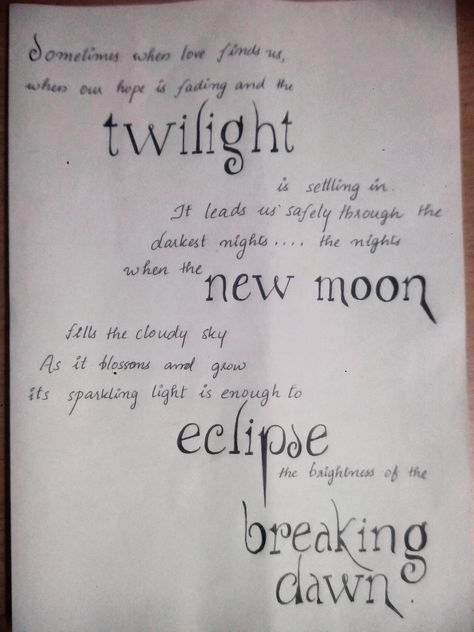 Sometimes when love finds us,
when our hope is fading and the
twilight
is settling in.
It leads us safely through the
darkest nights.... the nights
when the new moon
fills the cloudy sky
As it blossoms and grow
its sparkling light is enough to
eclipse
the brightness of the
breaking
dawn.